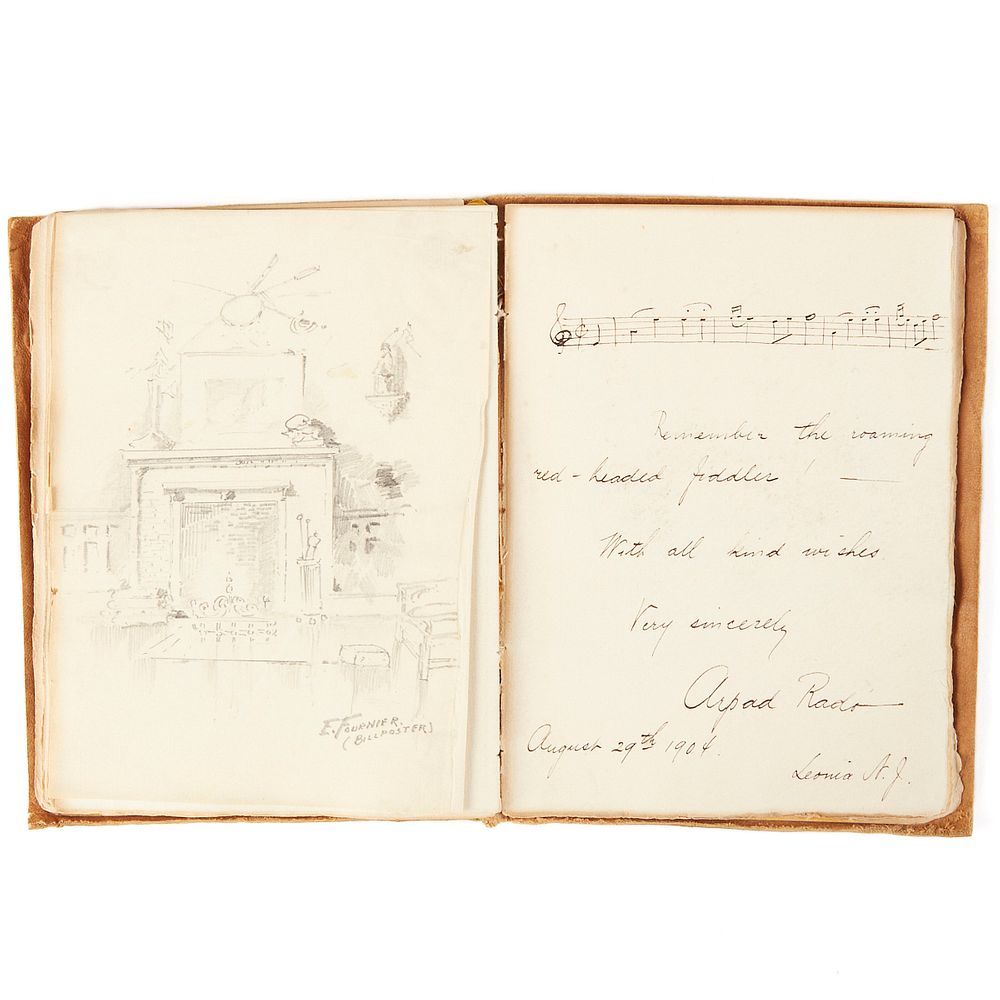 E. FOURNIER.
(BILLPOSTER)
Remember the roaming
red-headed fiddler! —
With all kind wishes
Very sincerely
Arpad Radó
August 29th 1904.
Leonia N.J.